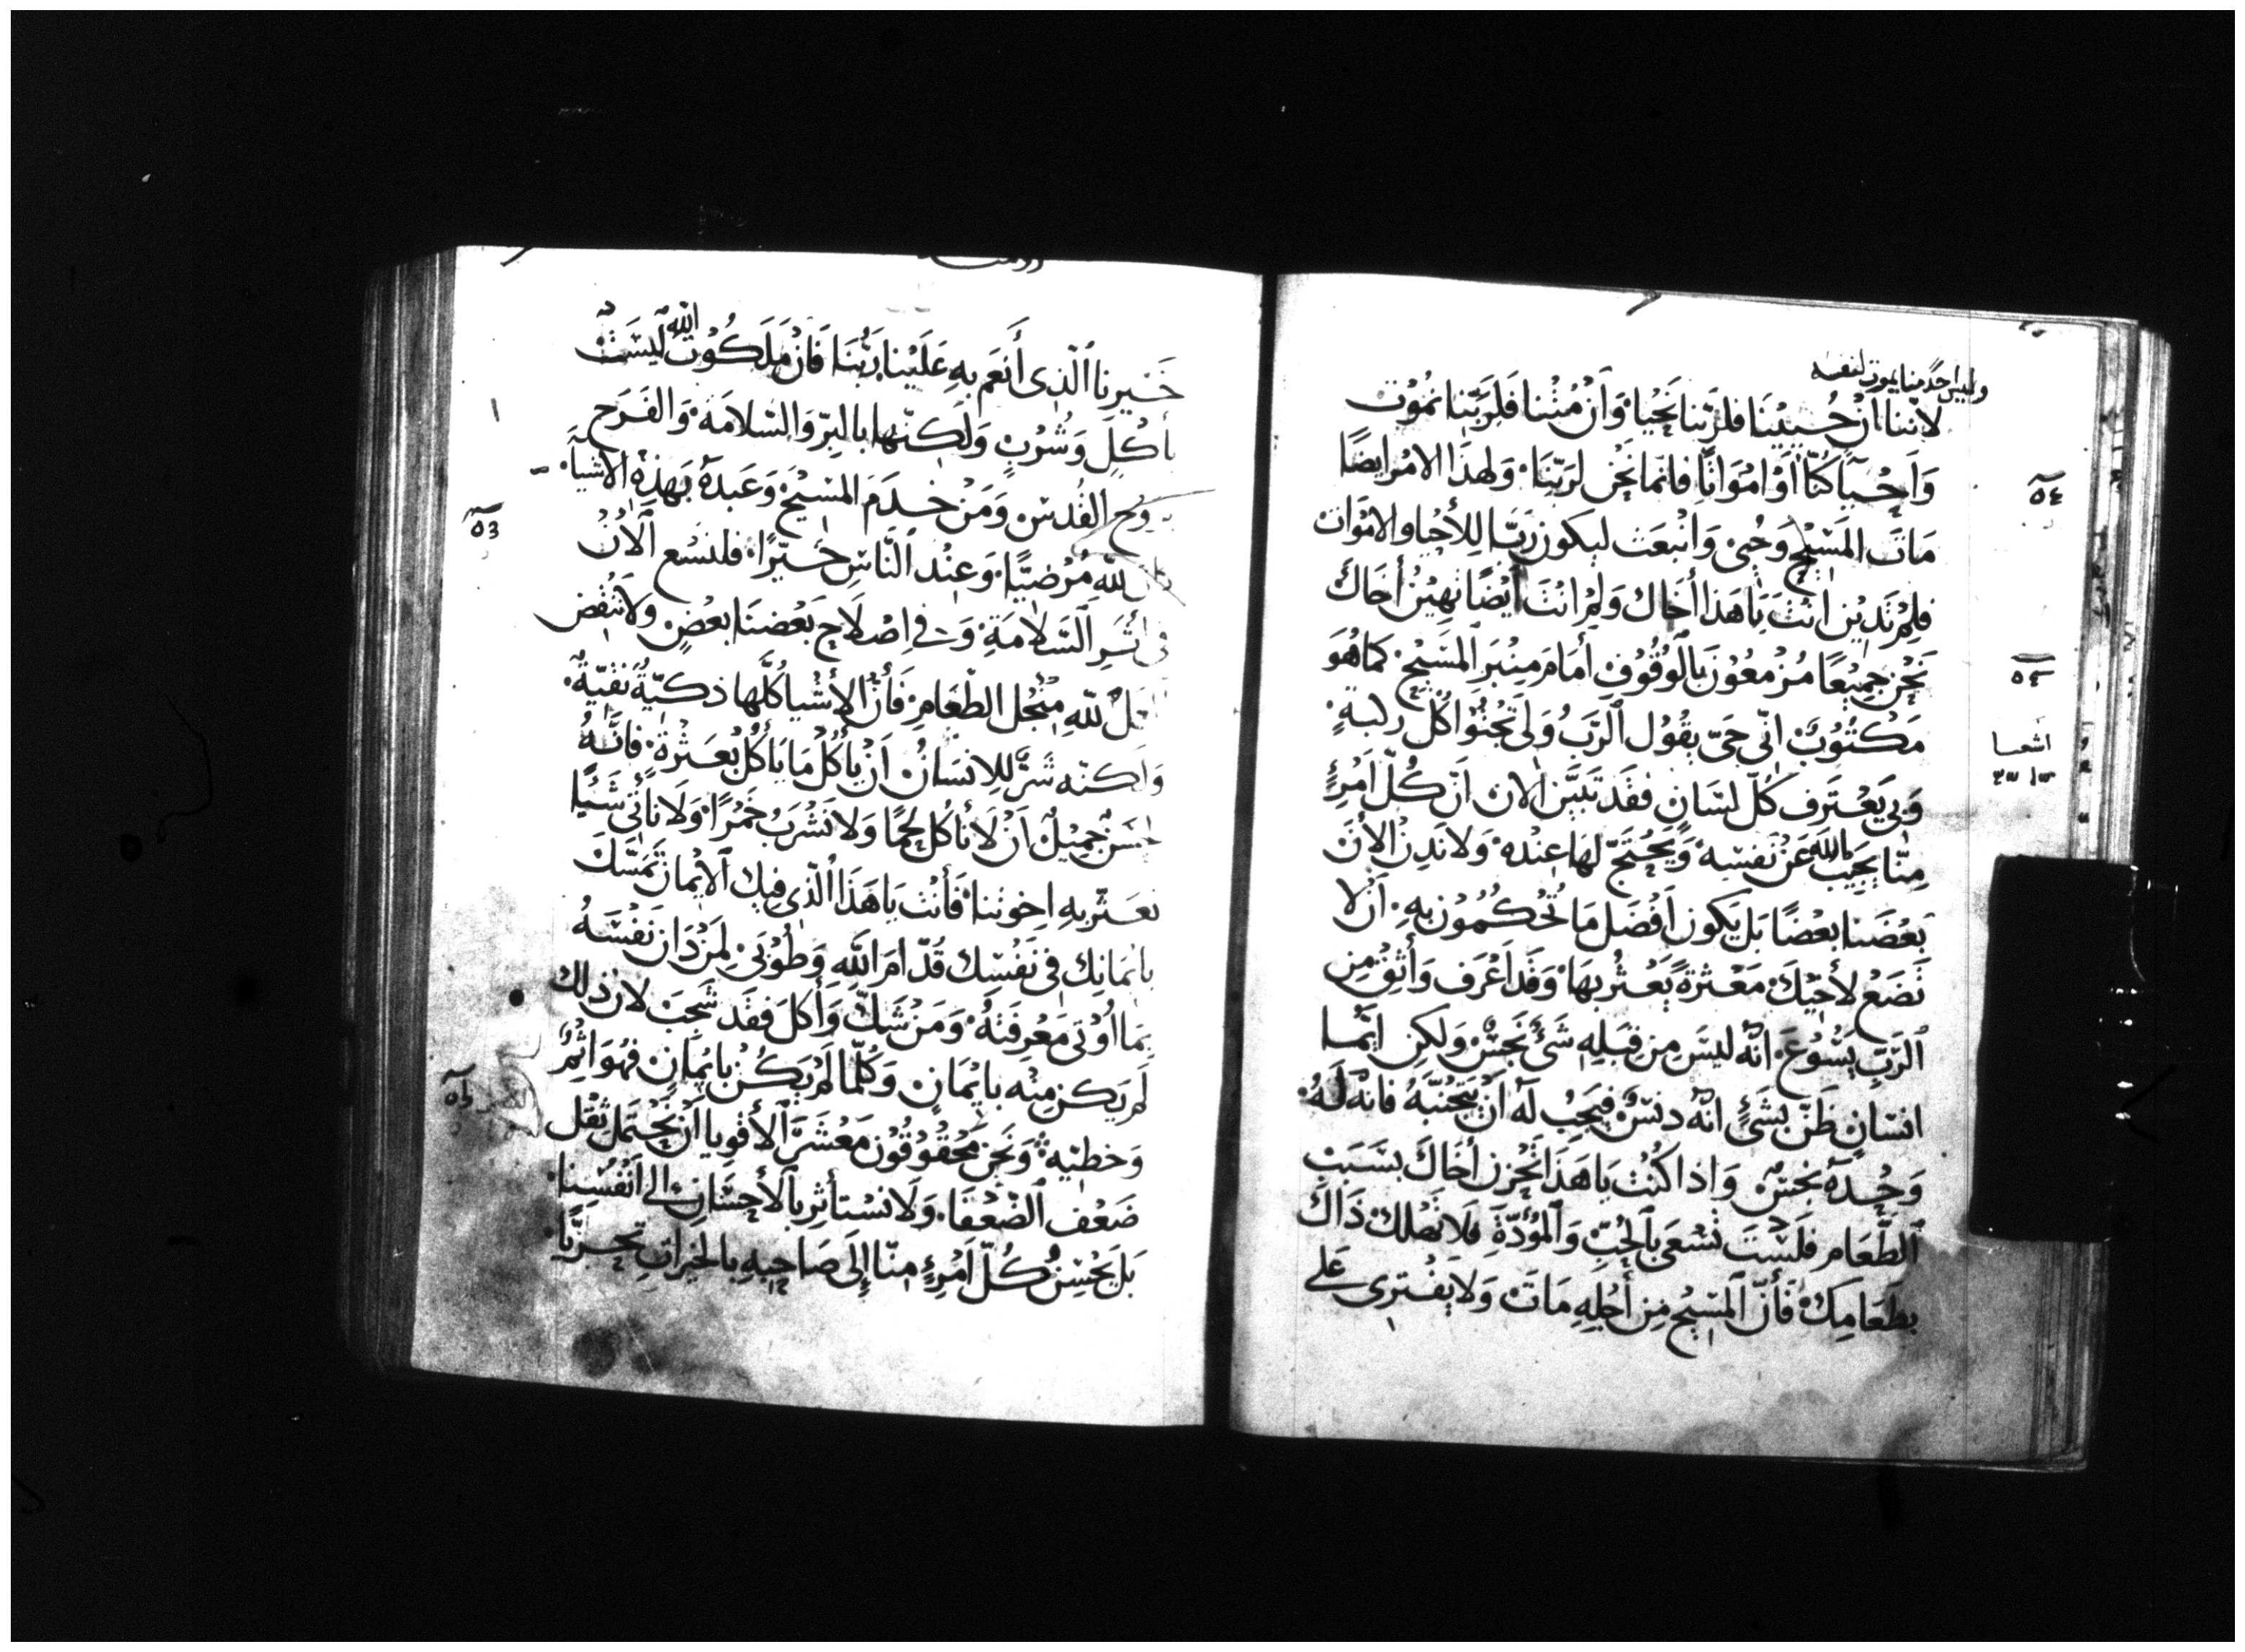 وليس احدًا منا يموت لنفسه
لأننا اِنْ حُيِيْنَا فلرَبّنا نَحْيَا وَاَنْ مُتْنا فَلِرَبِّنا نمُوْت
وَاَحْيآ كُنّا اَوْ امْوَاتًا فانما نَحْن لرَبّنَا وَلهذَا الامْر ايضًا
مَاتَ المَسْيْح وَحُيىْ وَانْبعَث ليكون رَبًّا لِلأحْيا والامْوَات
فلِمْ تَدِيْن انْتَ يَا هَذا أخَاك وَلِمْ انْتَ اَيْضًا تهِيْنُ أخَاكَ
نَحْن جَمِيْعًا مُزْمعُوْنَ بَالوُقُوْفِ أمَامَ مِنْبَرِ المَسْيْح كمَا هُوَ
مَكتُوْبٌ انّى حَىّ يقُوْل الرَّبُ وَلى تَجْثُوْا كُلّ ركبةٍ
وَبى يَعْتَرف كُلّ لسَانٍ فقَد تبَيَّن الان اَنّ كُلّ اَمْرِئٍ
مِنّا يجَيْب لله عَنْ نَفسِهْ وَيَحْتَجّ لهَا عِنْدهْ وَلا نَدِنْ الأنَ
بَعْضَنا بعْضًا بَل يَكون اَفْضَل مَا تَحْكُمُوْن بهِ اَنْ لا
نَضَعْ لأخيْكَ مَعْثَرةً يَعْثُر بهَا وَقد اَعْرَف وَأثِقْ مِن
الرَّبّ يَسُوْعَ انّه ليْسَ مِن قبَلِهِ شَئ نَجسٌ وَلكِن ايّمَا
انسَانٍ ظَنّ بشَئٍ انّهُ دنسٌ فيَجبُ لَه اَنْ يَتَجنّبَهُ فانّه لَهُ
وَحْدَهُ نجسٌ وَاِذا كُنْت يَا هَذَا تَحْزن أخَاكَ بسَبَبِ
الطَّعَام فَلَسْتَ تسْعَى بالحُبِّ وَالمُوَدّةِ فلا تَهْلك ذَاكَ
بطَعَامِكَ فَأنّ المَسْيْح مِن أجْلِهِ مَات وَلا يَفْترى عَلى
٥٤
اشعيا
خَيْرِنا الّذِى أَنعَم بهِ عَلَيْنا رَبُّنَا فَاَنْ مَلَكُوْت الله ليْسَتْ
بأكْلٍ وَشُرْبٍ وَلَكِنّها بالبِرّ وَالسّلامَة وَالفَرَح
بروْح القُدس وَمَنْ خدَمَ المسْيْح وَعَبدَهُ بهَذِهِ الأشيآ
كان للهِ مُرْضيًّا وَعِنْد النّاسِ خيّرًا فلنسْع الاٰنْ
فى أثَرِ السّلامَةِ وَفى اِصْلاح بَعْضنَا بعْضٍ وَلا نَنْقُض
عَمَلُ للهِ مِنْجُل الطّعَامِ فَأنّ الأشْيا كُلّها ذكيّةً نقيّةً
وَلكنّه شَرٌّ للاِنسَانُ اَنْ يأكُلْ مَا يأكُلْ بعَثْرةٍ فانّهُ
حسَنٌ جَمِيْلٌ اَنْ لا نأكُل لحمًا وَلا نَشْرَبُ خَمْرًا وَلا نأتى شَيْئًا
نعَثّر بهِ اِخوتنا فَأنْت يَا هَذَا الّذِى فيك الايْمَانُ تَمَسّكْ
باِيمَانِك فى نَفْسِك قُدّامَ اللهِ وَطُوْبَىْ لِمَنْ دَان نَفْسَهُ
بِمَا اُوْتى مَعْرِفَتهُ وَمَنْ شَكّ وَأكَلَ فقَد شجَبَ لان ذلك
لم يَكن مِنْه بايْمَانٍ وَكُلّما لَمْ يَكُنْ بايْمَانٍ فهُوَ اثْمٌ
وَخطيّه وَنَحْن مَحْقُوْقُوْن مَعْشَرَ الأقوِيا اَنْ نَحْتَمل ثِقْل
ضَعْف الضّعْفَا وَلا نسْتأثر بالأحسَان الى اَنْفُسِنا
بَل يَحْسِنُ كُلّ اَمْرِئٍ مِنّا إلَى صَاحِبهِ بالخيرَات
٥٥